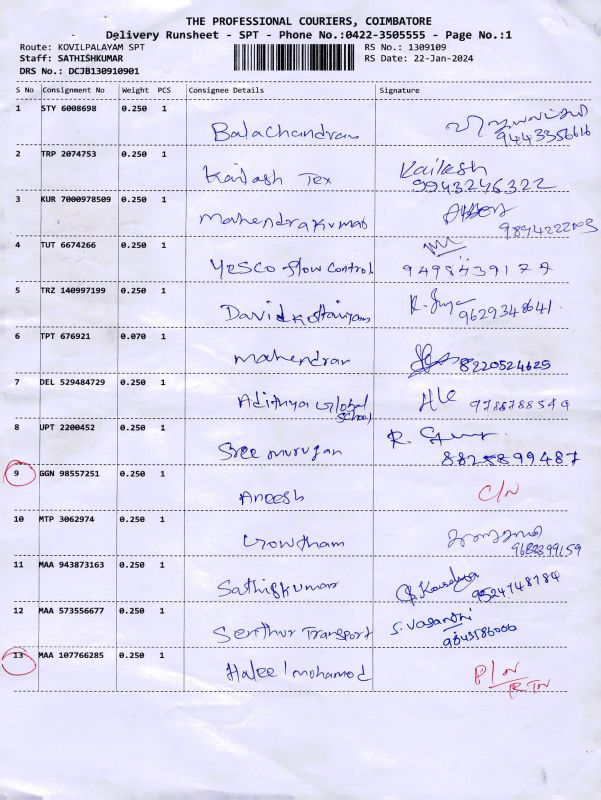 THE PROFESSIONAL COURIERS, COIMBATORE
Delivery Runsheet - SPT - Phone No.:0422-3505555 - Page No.:1
Route: KOVILPALAYAM SPT
Staff: SATHISHKUMAR
DRS No.: DCJB130910901
RS No.: 1309109
RS Date: 22-Jan-2024
S No Consignment No Weight PCS Consignee Details Signature
1 STY 6008698 0.250 1
Balachandran 9443356616
2 TRP 2074753 0.250 1
Kailash Tex Kailash
9943246322
3 KUR 7000978509 0.250 1
Mahendrakumar
4 TUT 6674266 0.250 1
Yesco flow control 9498439177
5 TRZ 140997199 0.250 1
David 9629348641
6 TPT 676921 0.070 1
Mahendran 8220524625
7 DEL 529484729 0.250 1
Adithya Global
School
8 UPT 2200452 0.250 1
Sree murugan
8825899487
9 GGN 98557251 0.250 1
Aneesh C/N
10 MTP 3062974 0.250 1
Gowtham
11 MAA 943873163 0.250 1
Sathiskumar 9524748784
12 MAA 573556677 0.250 1
Senthur Transport S. Vasanthi
13 MAA 107766285 0.250 1
Haleelmohamod P/N
RTN